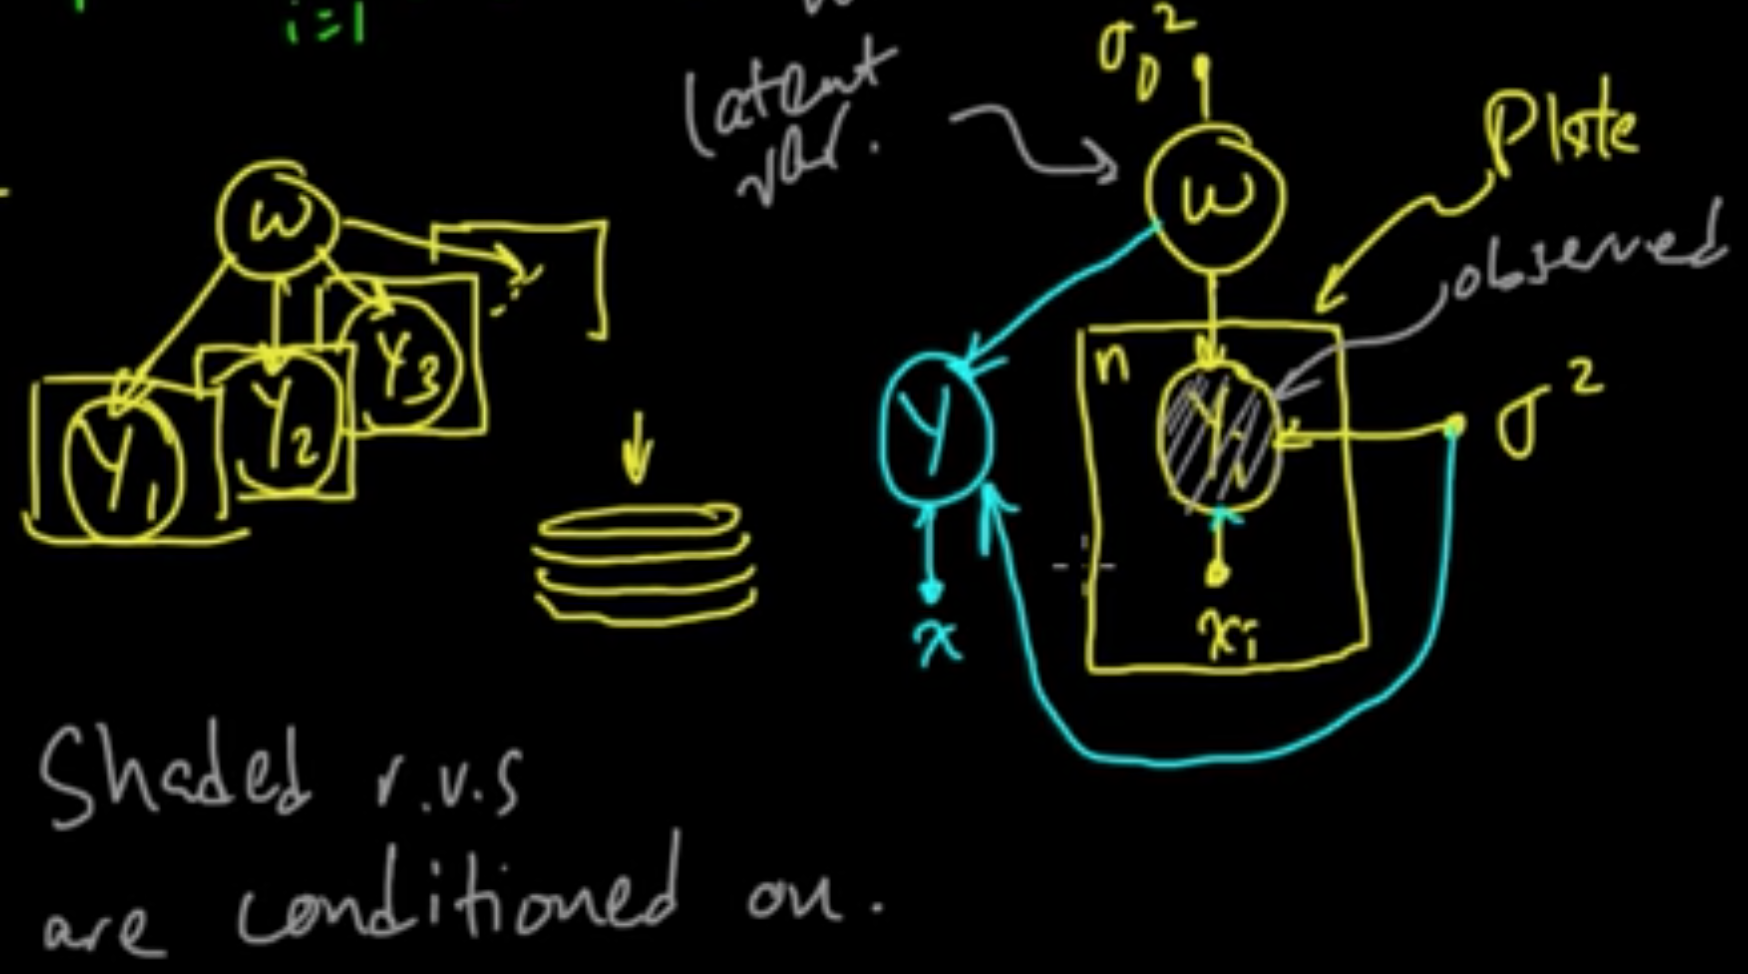 i=1
latent
var.
σ₀²
w
Plate
observed
w
Y₁
Y₂
Y₃
Y
n
Yᵢ
σ²
x
xᵢ
Shaded r.v.s
are conditioned on.